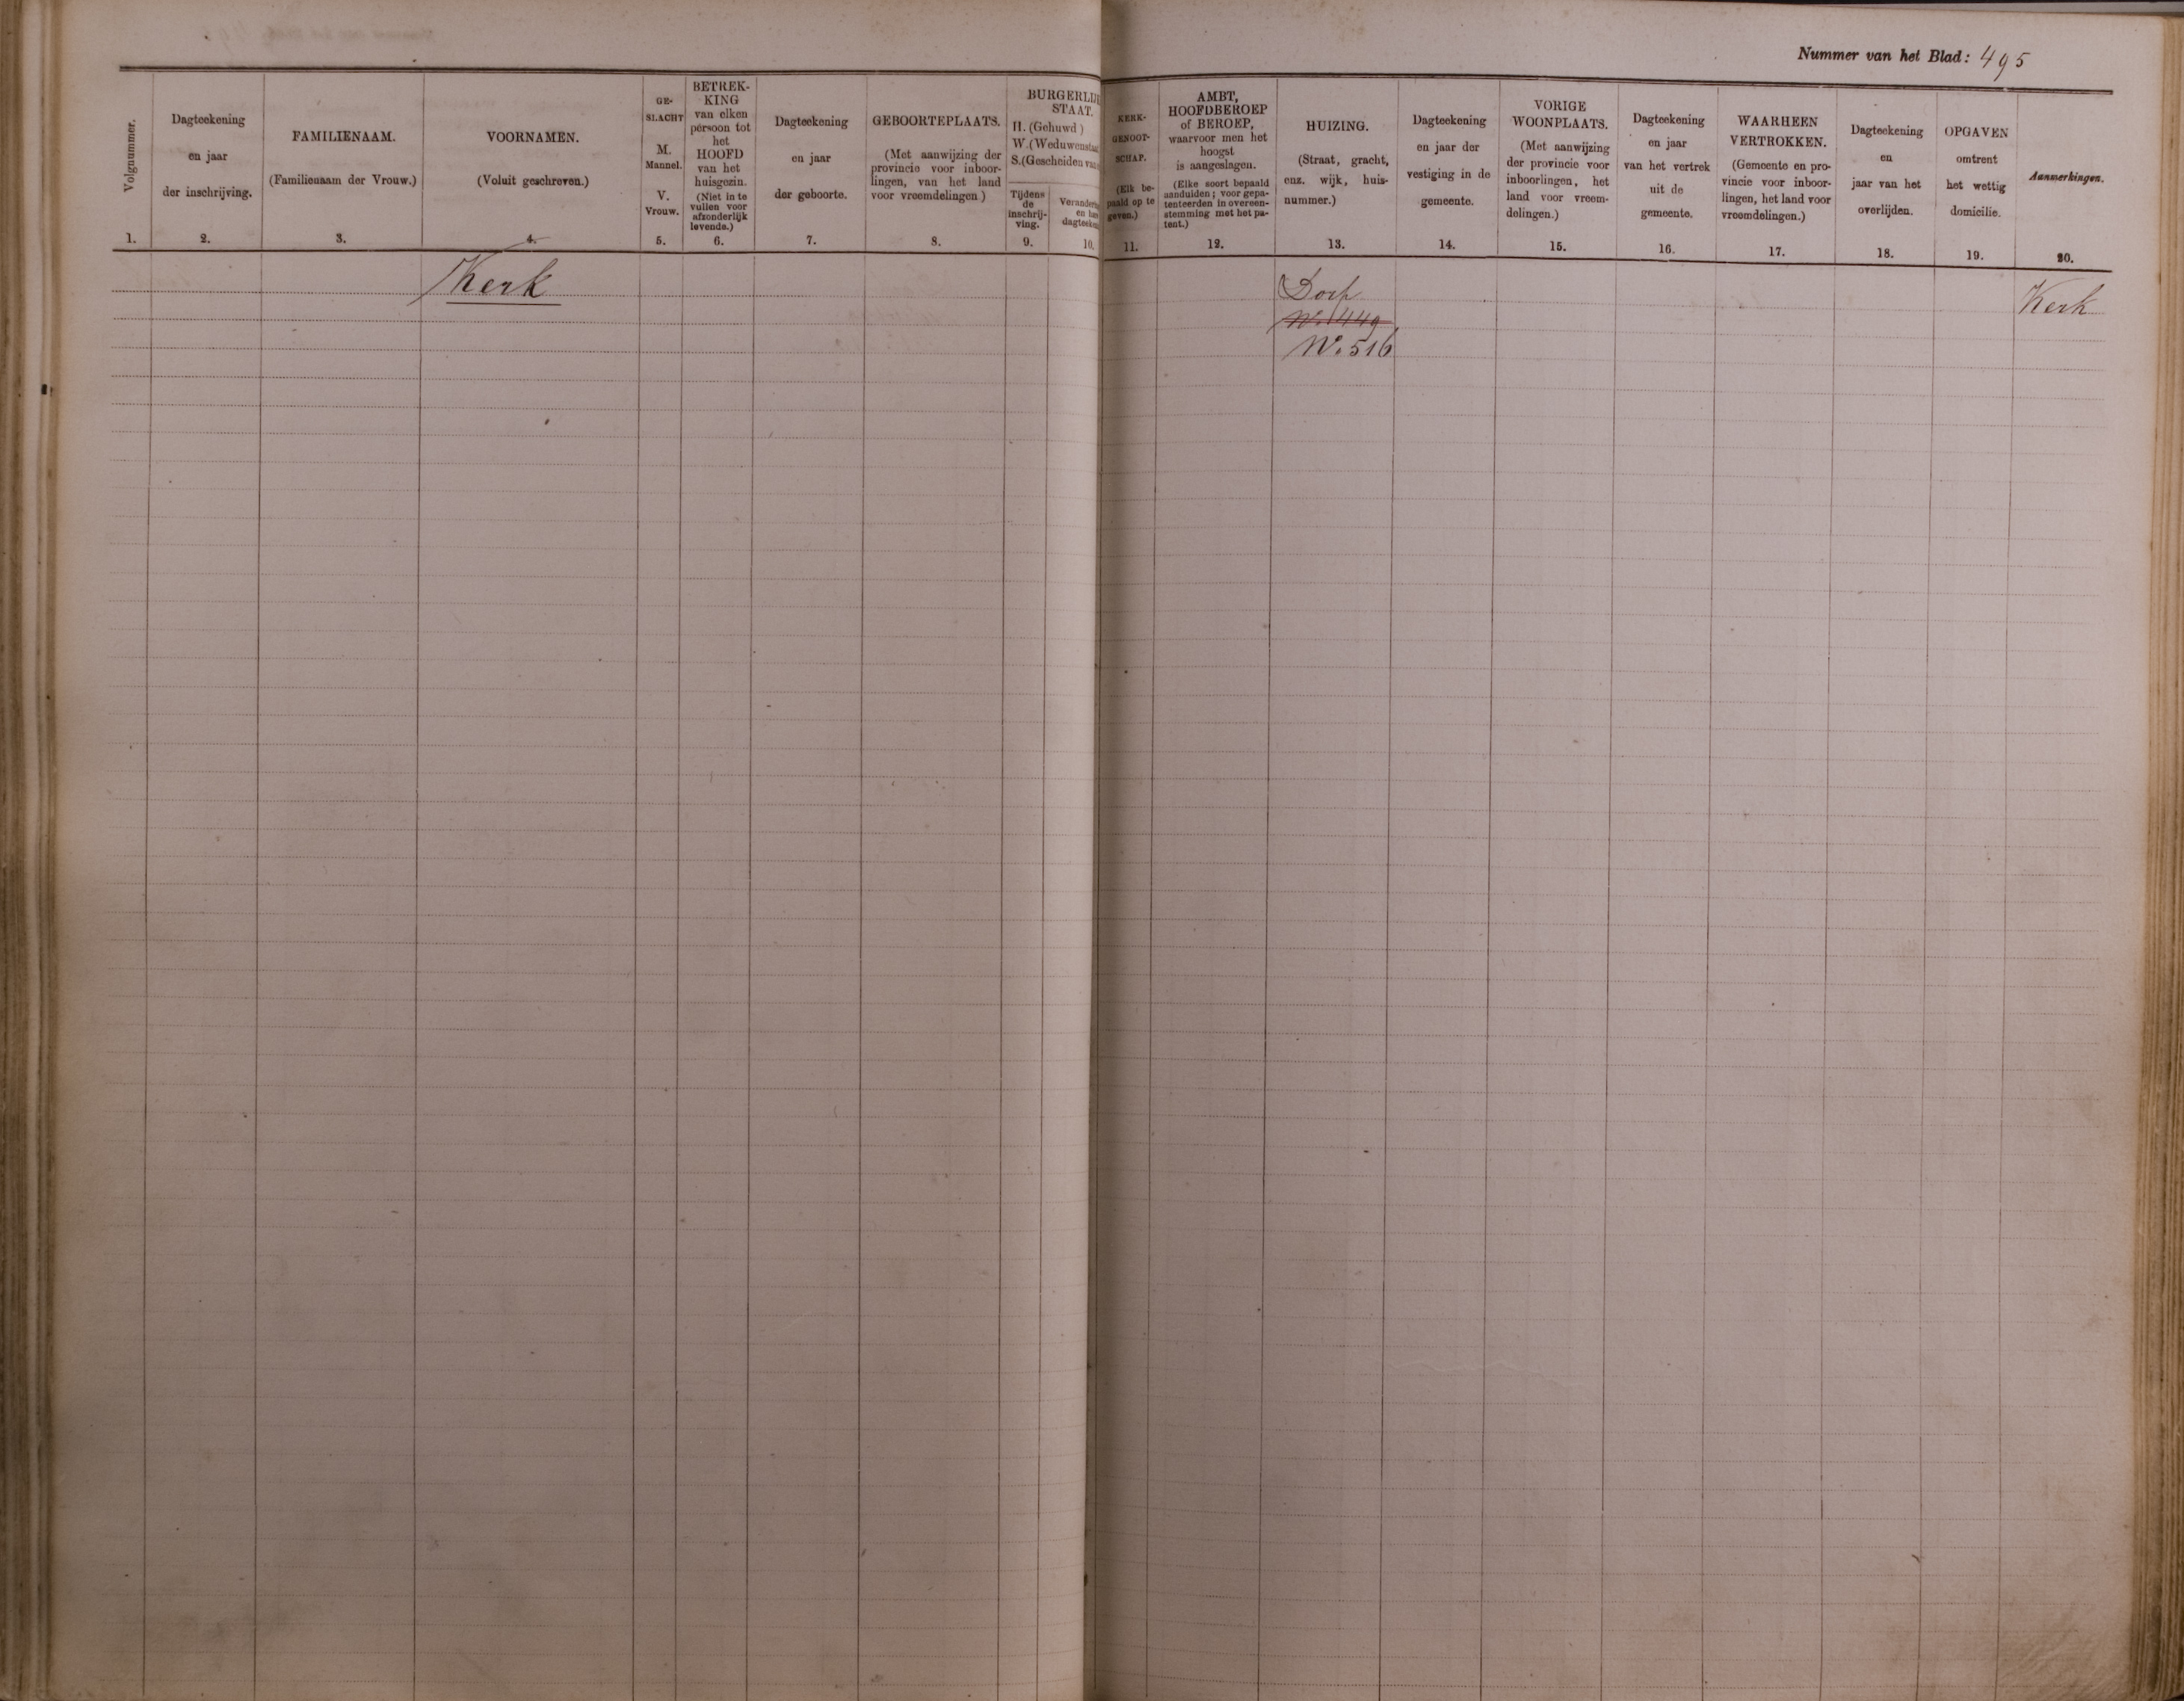 Nummer van het Blad: 495
Volgnummer.
1.
Dagteekening
en jaar
der inschrijving.
2.
FAMILIENAAM.
(Familienaam der Vrouw.)
3.
VOORNAMEN.
(Voluit geschreven.)
4.
GE-
SLACHT
M.
Mannel.
V.
Vrouw.
5.
BETREK-
KING
van elken
persoon tot
het
HOOFD
van het
huisgezin.
(Niet in te
vullen voor
afzonderlijk
levende.)
6.
Dagteekening
en jaar
der geboorte.
7.
GEBOORTEPLAATS.
(Met aanwijzing der
provincie voor inboor-
lingen, van het land
voor vreemdelingen)
8.
BURGERLIJ
STAAT.
H. (Gehuwd)
W. (Weduwensta
S. (Gescheiden va
Tijdens
de
inschrij-
ving.
9.
Verander
en hu
dagteek
10.
KERK-
GENOOT-
SCHAP.
(Elk be-
paald op te
geven.)
11.
AMBT,
HOOFDBEROEP
of BEROEP,
waarvoor men het
hoogst
is aangeslagen.
(Elke soort bepaald
aanduiden; voor gepa-
tenteerden in overeen-
stemming met het pa-
tent.)
12.
HUIZING.
(Straat, gracht,
enz. wijk, huis-
nummer.)
13.
Dagteekening
en jaar der
vestiging in de
gemeente.
14.
VORIGE
WOONPLAATS.
(Met aanwijzing
der provincie voor
inboorlingen, het
land voor vreem-
delingen.)
15.
Dagteekening
en jaar
van het vertrek
uit de
gemeente.
16.
WAARHEEN
VERTROKKEN.
(Gemeente en pro-
vincie voor inboor-
lingen, het land voor
vreemdelingen.)
17.
Dagteekening
en
jaar van het
overlijden.
18.
OPGAVEN
omtrent
het wettig
domicilie.
19.
Aanmerkingen.
20.
Kerk
Dorp
No. 449
No. 516
Kerk